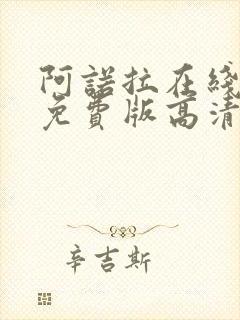 阿諾拉在綫
免費版高清
辛吉斯